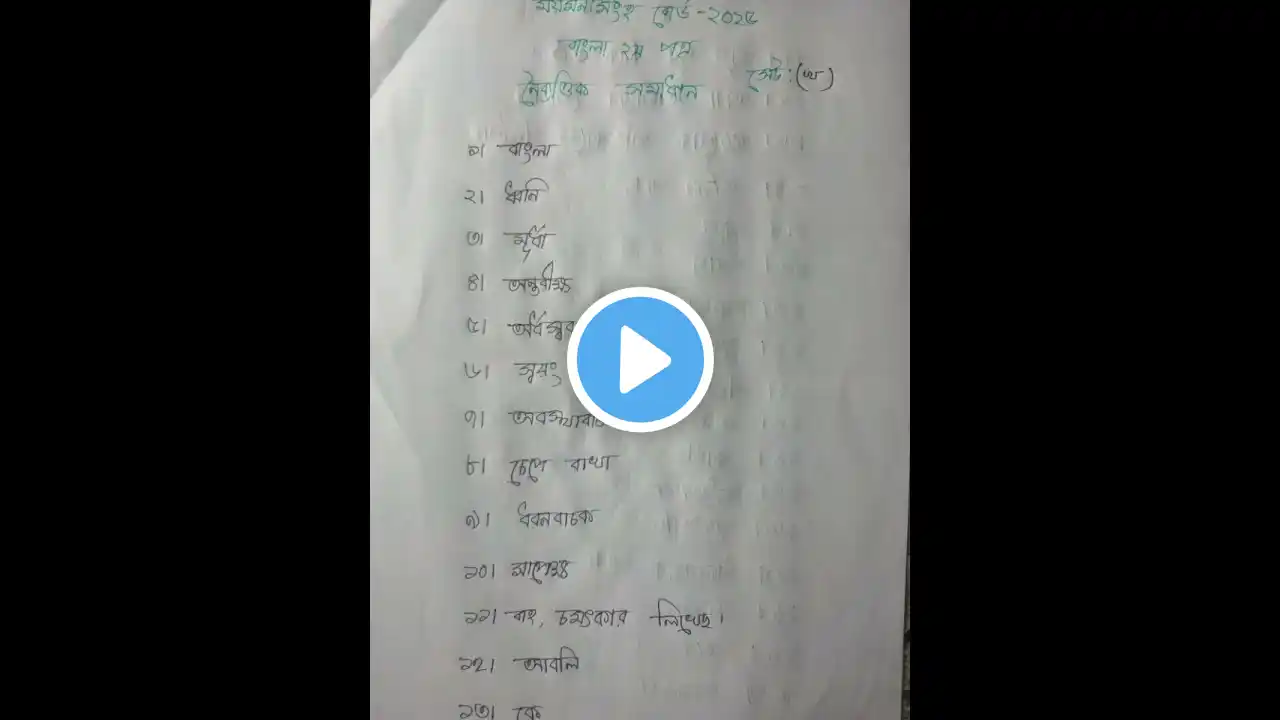 ময়মনসিংহ বোর্ড -২০২৫
বাংলা ২য় পত্র
নৈর্ব্যত্তিক সমাধান সেট : (খ)
১। বাংলা
২। ধ্বনি
৩। মূর্ধা
৪। অন্তরীক্ষ
৫। অর্ধস্বর
৬। স্বয়ং
৭। অবস্থাবাচ
৮। চেপে রাখা
৯। ধরনবাচক
১০। সাপেক্ষ
১১। বাহ, চমৎকার লিখেছ।
১২। আবলি
১৩। কে